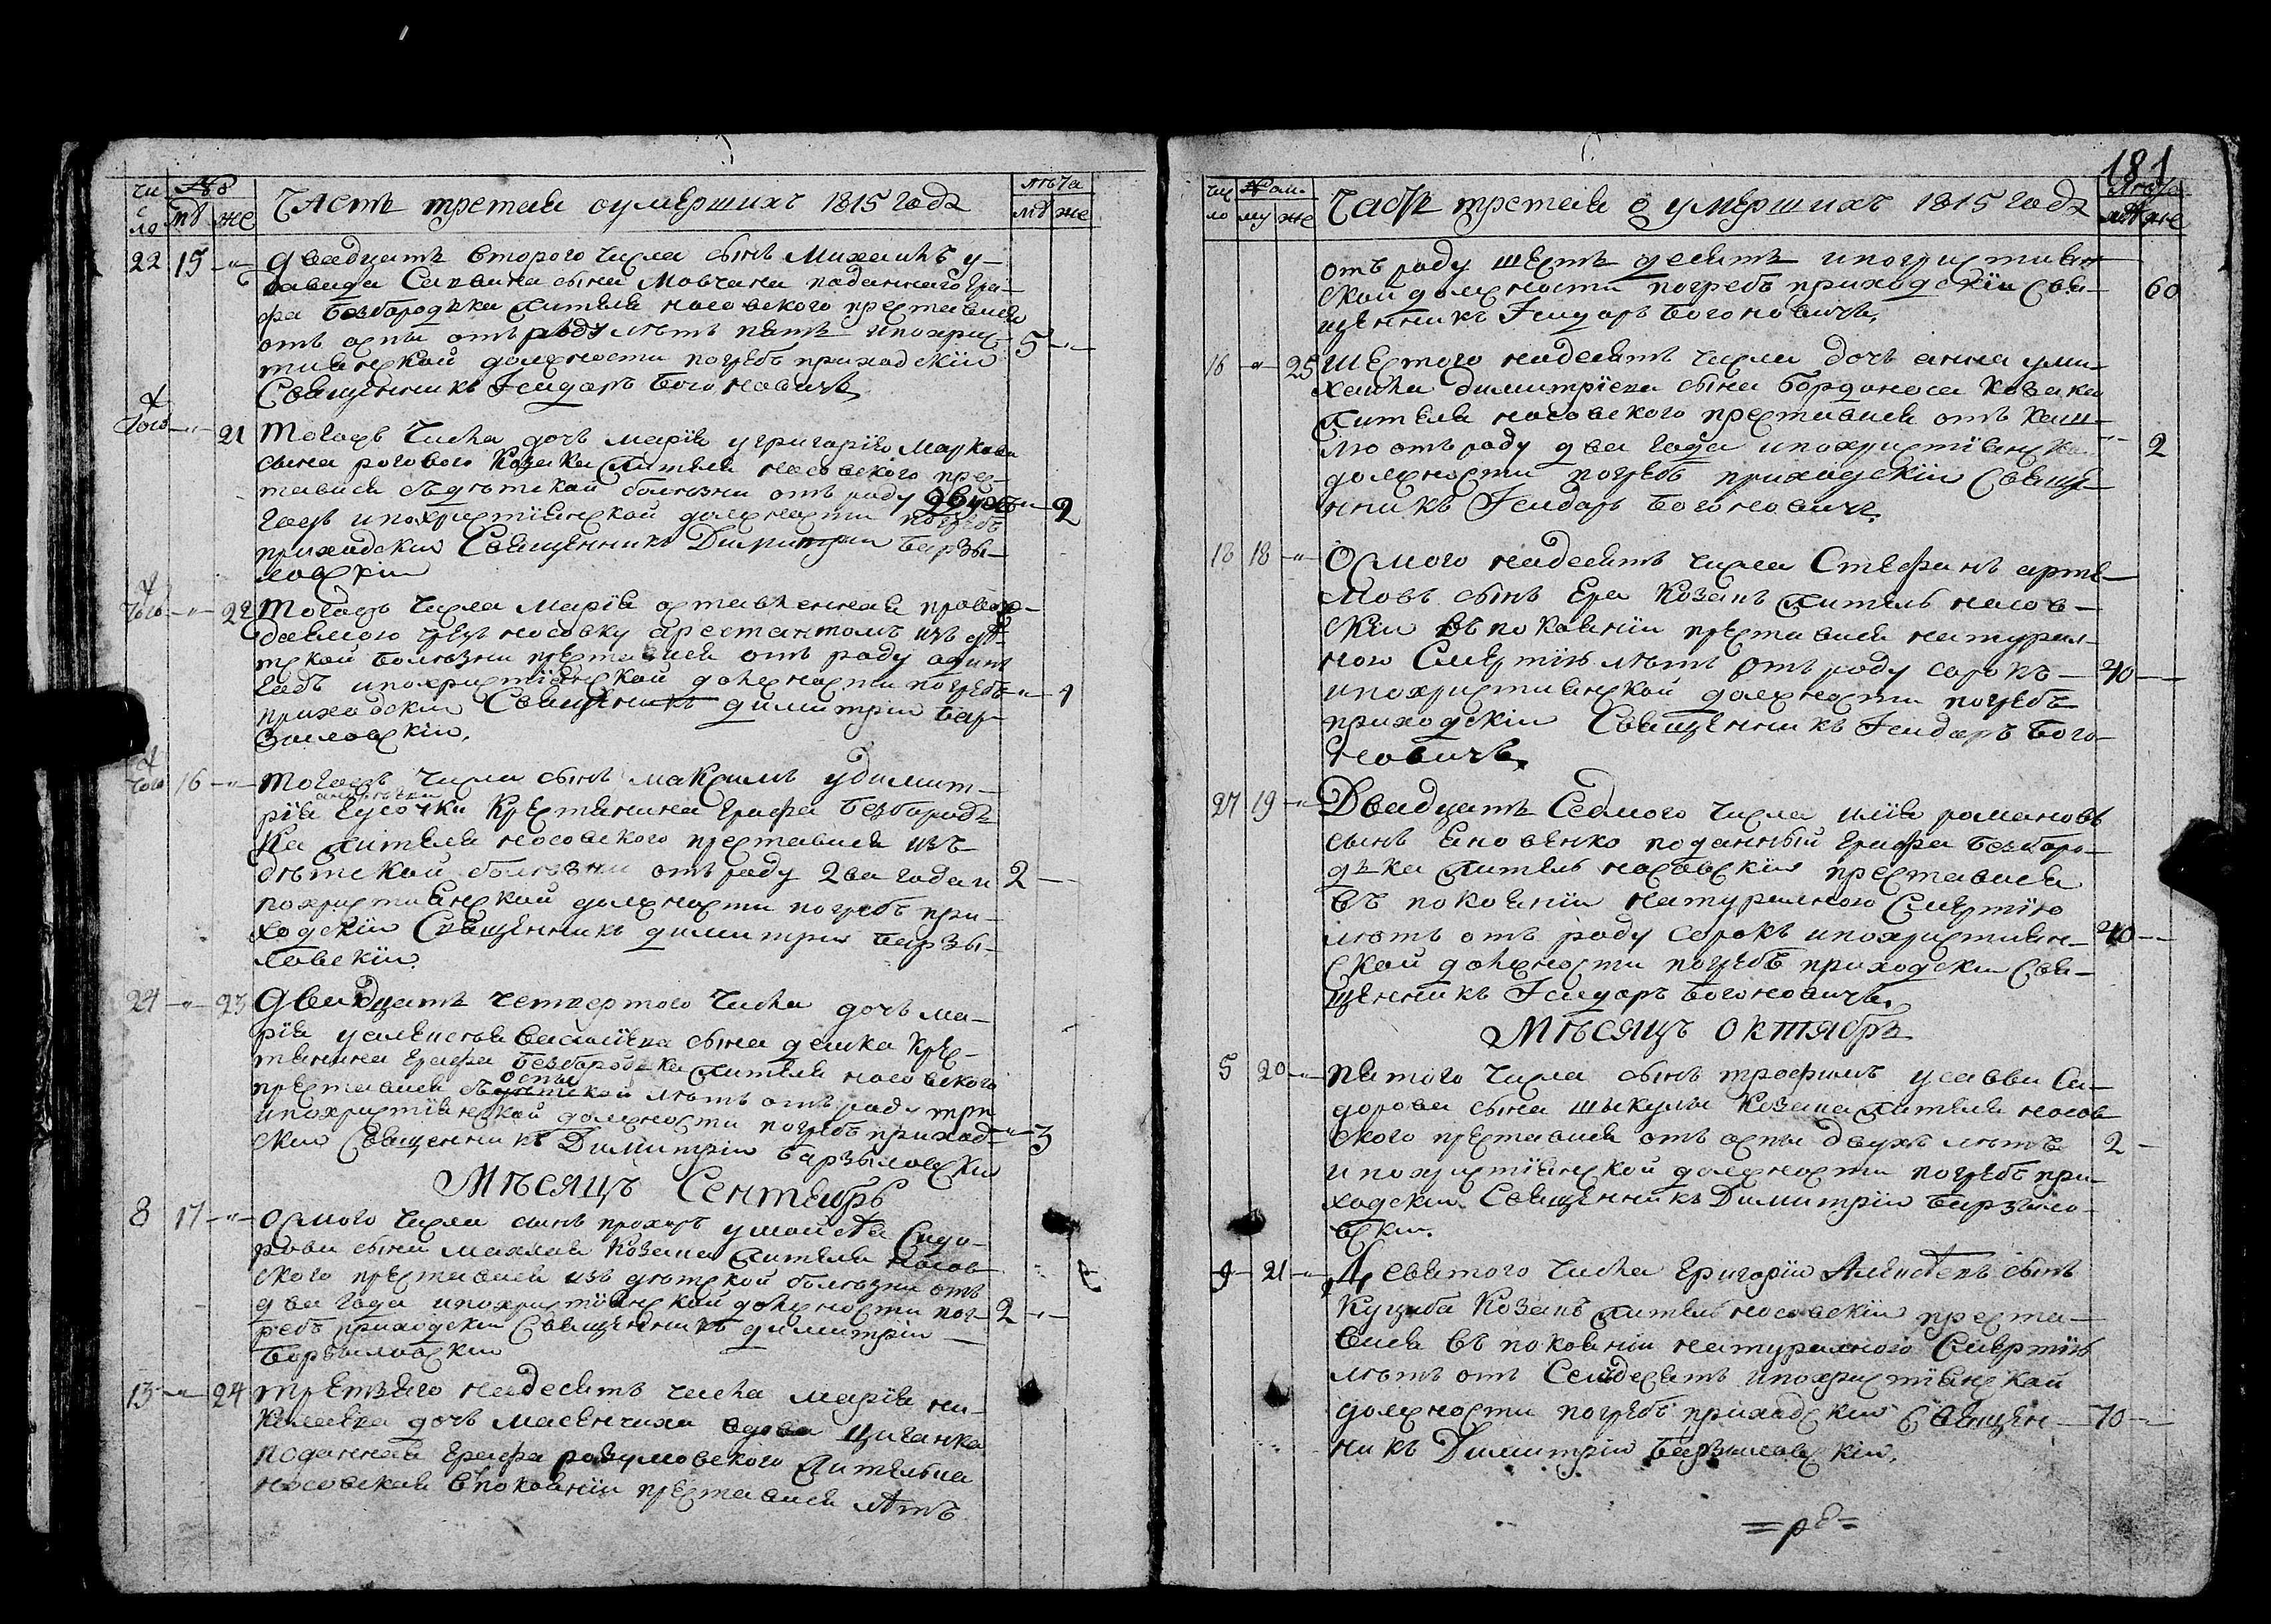 чи
сло
№
мѣ
же
Часть третая о умершихъ 1815 года
лѣта
мѣ
же
22 15 -"- двадцать второго числа сынъ Михаилъ у
Давида Саввина сына Мовчана поданнаго Гра-
фа Безбородька жителя носовского преставися
отъ оспы отъ роду лѣтъ пять и по хрис- 5 -"-
тиянской должности погребъ приходскій
Священникъ Ісидоръ Богоновичъ
Того -"- 21 Тогожъ числа дочь Марія у Григорія Маркова
сына рогового козака жителя носовского прес-
тавися дѣтской болѣзни отъ роду
годъ и по христіянской должности погребъ -"- 2
приходскій Священникъ Димитрій Барзы-
ловскій
Того -"- 22 Тогожъ числа Марія оставленная провож-
даемого чрезъ носовку арестантомъ изъ дѣ-
тской болѣзни преставися отъ роду одинъ
годъ и по христіянской должности погребъ -"- 1
приходскій Священникъ Димитрій Бар-
зиловскій.
Того 16 -"- Тогожъ числа сынъ Максимъ у Димит-
рія Гусочки Крестянина Графа Безбородь-
ка жителя носовского преставися изъ
дѣтской болѣзни отъ роду 2ва года и 2 -
по християнской должности погребъ при-
ходскій Священникъ Димитрій Барзы-
ловскій.
24 -"- 23 Двадцать четвертого числа дочь Ма-
рія у Василіева сына Крес-
тянина Графа Безбородька жителя носовского
оспы
преставися лѣтъ отъ роду три
и по христіянской должности погребъ приход- -"- 3
скій Священникъ Димитрій Барзыловскій
Мѣсяцъ Сентябрь
8 17 -"- Осмого числа сынъ Прохоръ у Мойсѣя Сидо-
рова сына Козака жителя носов-
ского преставися изъ дѣтской болѣзни отъ
два года и по христіянской должности пог- 2 -"-
ребъ приходскій Священникъ Димитрій
Борзыловскій
13 -"- 24 Третяго надесять числа Марія Ни-
колаева дочь Масенчиха вдова Циганка
поданная Графа розумовского жителька
носовская въ покаяніи преставися лѣтъ
181
чис
ло
Ном.
му
же
Часть третая о умершихъ 1815 года
лѣта
же
отъ роду шесть десять и по християн-
ской должности погребъ приходскій Свя- 60
щенникъ Ісидоръ Богоновичъ,
16 -"- 25 Шестого надесять числа дочь Анна у Ми-
хаила Димитріева сына Бордоноса Козака
жителя носовского преставися отъ каш-
лю отъ роду два года и по христіянской -"- 2
должности погребъ приходскій Свяще-
нникъ Ісидоръ Богоновичъ.
18 18 -"- Осмого надесять числа Стефанъ Арте-
мовъ сынъ Ера Козакъ житель носов-
скій въ покаяніи преставися натурал-
ною Смертію лѣтъ отъ роду сорокъ 40 -
и по християнской должности погребъ
приходскій Священникъ Ісидоръ Бого-
новичъ.
27 19 -"- Двадцать Седмого числа Илія Романовъ
сынъ Яновенко поданный Графа Безборо-
дька житель носовскій преставися
въ покаяніи натуралною Смертію
лѣтъ отъ роду сорокъ и по християн- 40 -
ской должности погребъ приходскій Свя-
щенникъ Ісидоръ Богоновичъ.
Мѣсяцъ Октябрь
5 20 -"- Пятого числа сынъ Трофимъ у Саввы Си-
дорова сына Шыкулы Козака жителя носов-
ского преставися отъ оспы двухъ лѣтъ 2 -
и по христіянской должности погребъ при-
ходскій Священникъ Димитрій Барзыло-
вскій.
9 21 -"- Девятого числа Григорій Алексѣевъ сынъ
Куцыба Козакъ житель носовскій преста-
вися въ покаяніи натуралною Смертію
лѣтъ отъ Семдесятъ и по христіянской
должности погребъ приходскій Священ- 70 -"-
никъ Димитрій Барзыловскій.